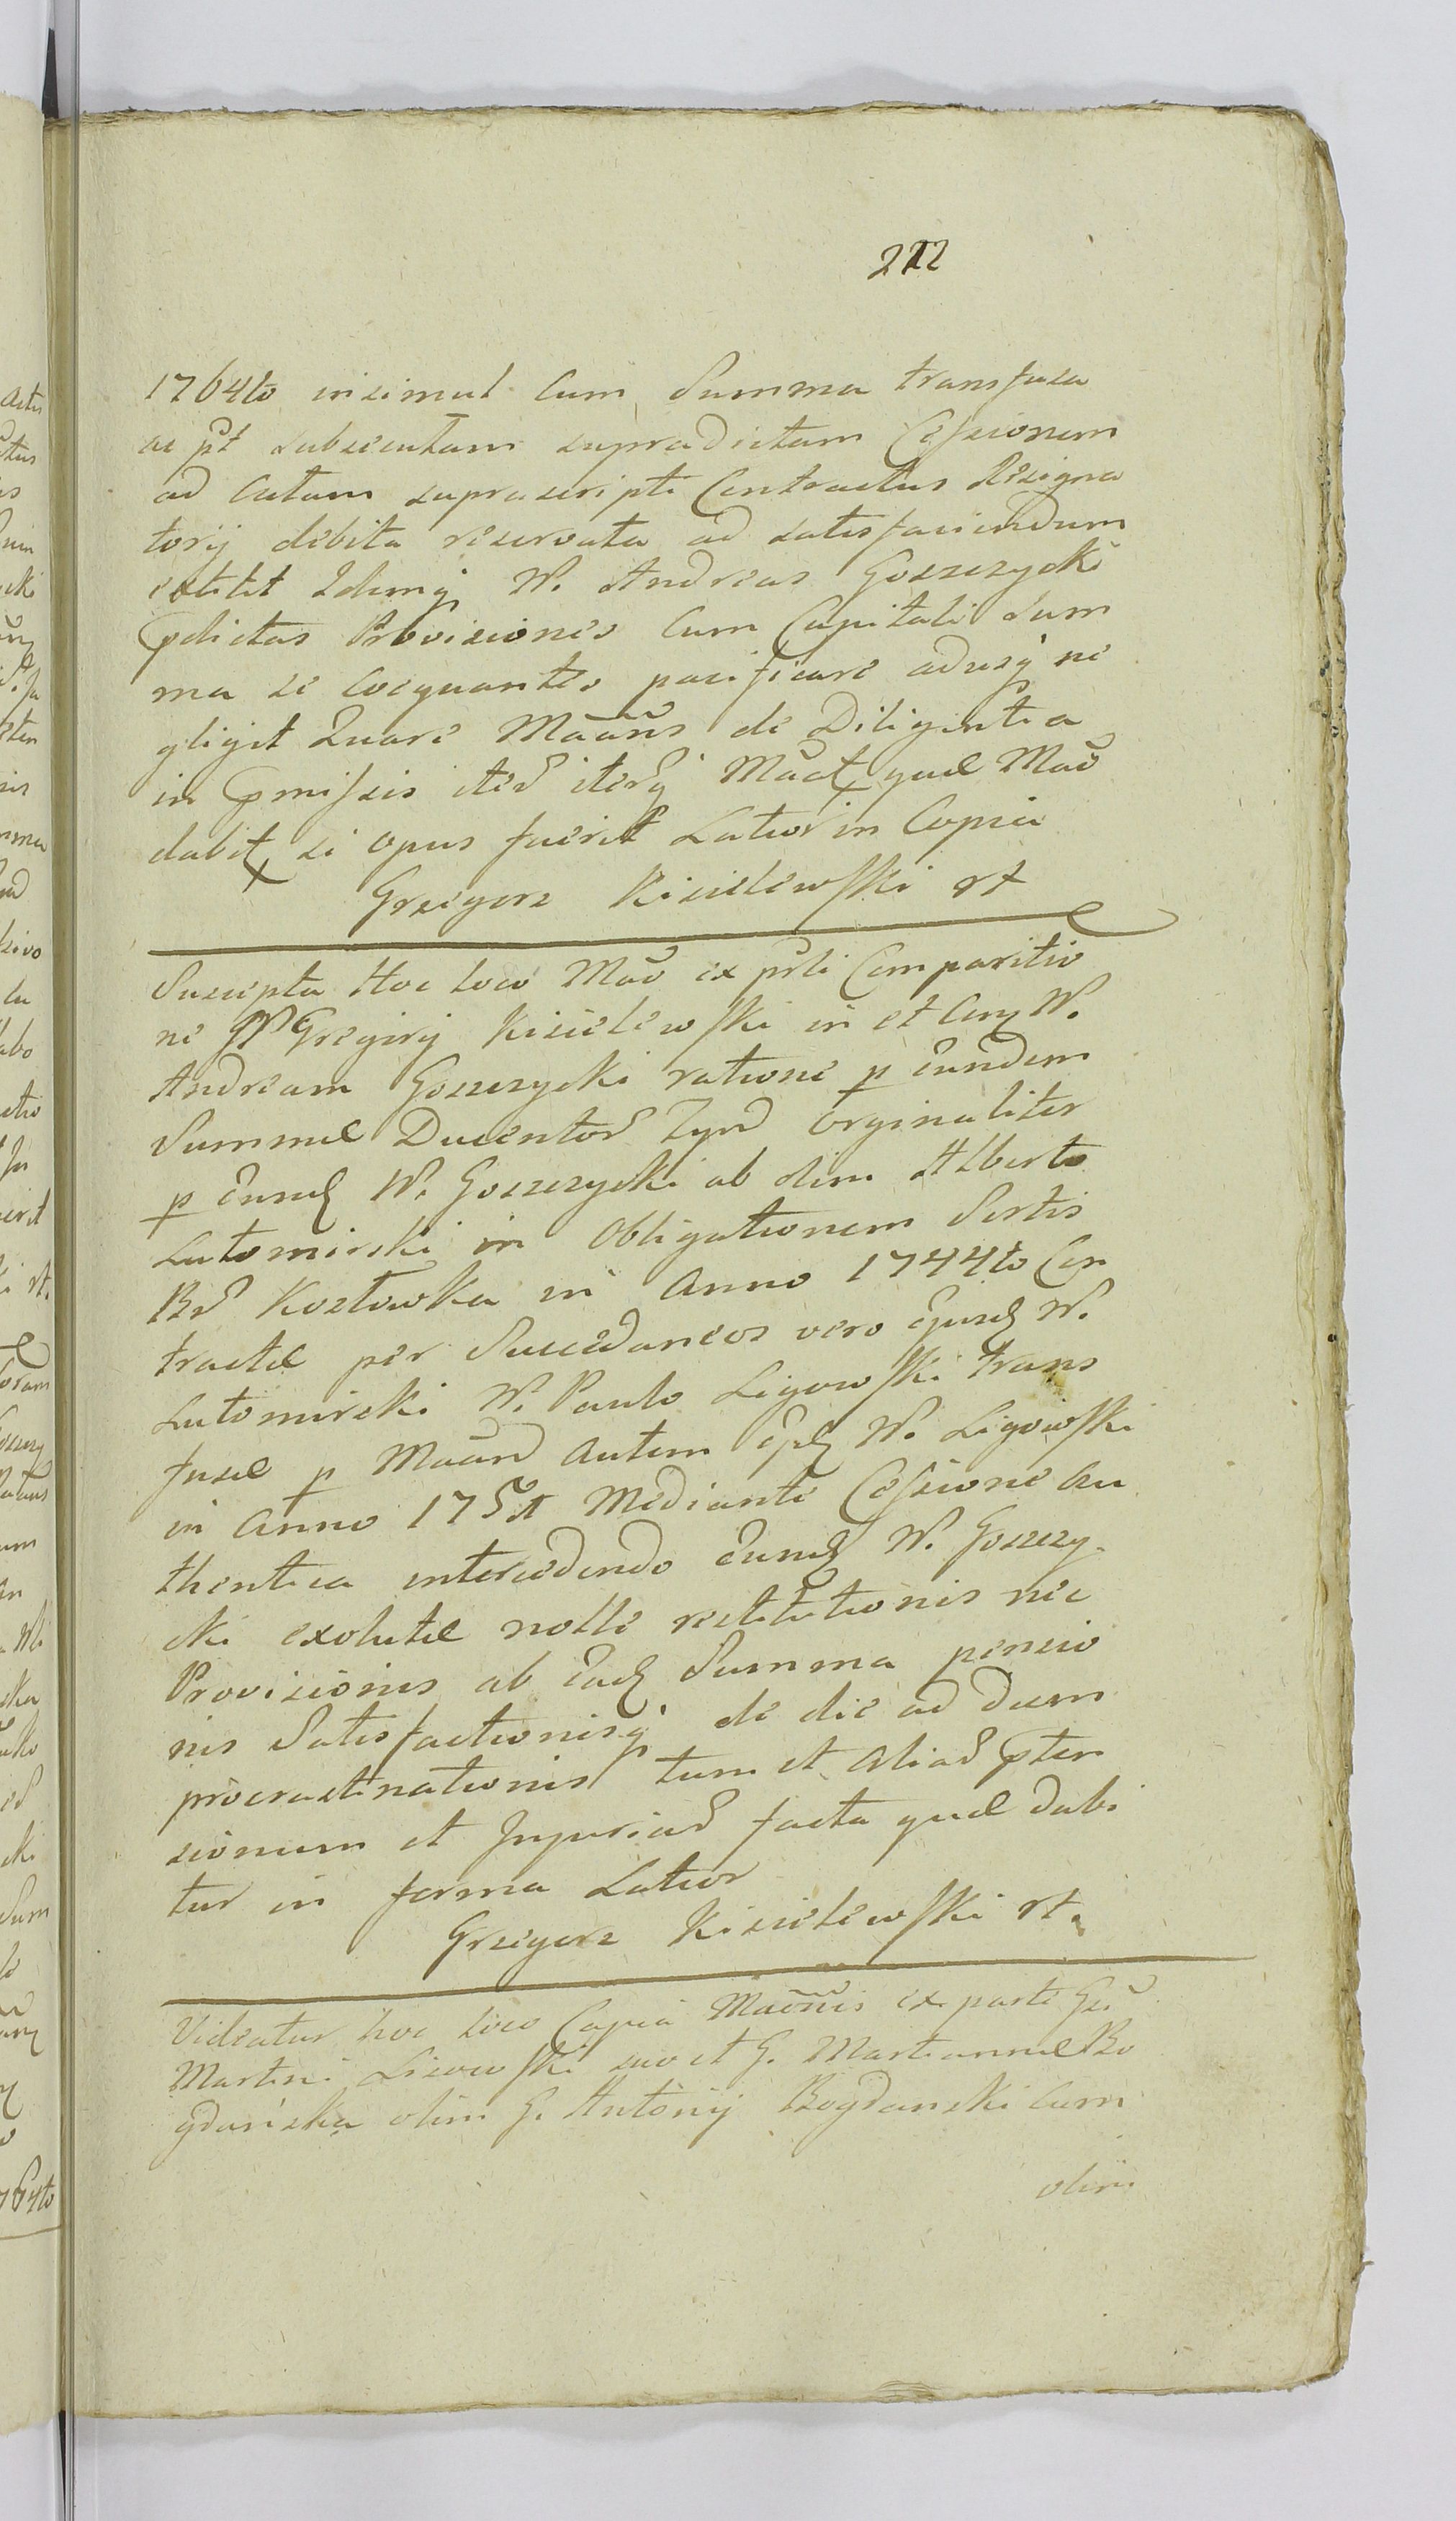 212
1764to insimul Cum Summa transfusa
ac pt subsecutam supradictam Cessionem
ad Cutam suprascripti Contractus Resigna
torij debita reservata ad satisfaciendum
extitit Idemq W. Andreas Goszczycki
pdictas Provisiones Cum Capitali Sum
ma se Coequantes pacificare adusq ne
gligit Quare Maans de Diligentia
in pmissis itěd itěrq Maat quæ Mao
dabit si opus fuerit Latior in Copia
Grzegorz Kisielewski rt
Suscepta Hoc Loco Mao ex prli Comparitio
ne GN Gregirij Kisielewski in et Cong W.
Andream Goszczycki ratione p Eundem
Summæ Ducentoř Tynf orginaliter
p Eund W. Goszczycki ab olim Alberto
Lutomirski in Obligationem Sortis
Boř Kozłowka in Anno 1744to Con
tractæ per Succedaneos vero Ejusd W.
Lutomirski W. Paulo Ligowski trans
fusæ p Maand autem Ejsd W. Ligowski
in Anno 1751 Mediante Cessione au
thentica intercedendo Eund W. Goszczy-
cki exolutæ nolle restitutionis nec
Provisionis ab Ead Summa pensio
nis Satisfactionisq de die ad diem
procrastinationis tum et aliař pten
sionum et Injuriař facta quæ dabi
tur in forma Latior
Grzegorz Kisielewski rt.
Videatur hoc loco Copia Maonis ex parte Gsi
Martini Lisowski suo et G. Martiannæ Bo
gdańska olim G. Antonij Bogdanski Cum
olim